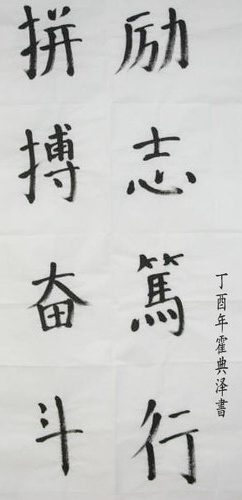 励志笃行
拼搏奋斗
丁酉年霍典泽書